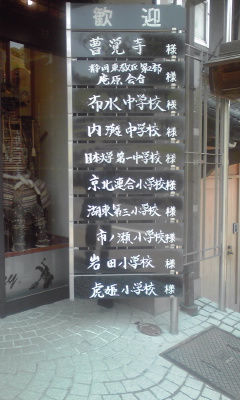 歓迎
誓覚寺 様
静岡東教区第2部
庵原会台 様
布水中学校 様
内灘中学校 様
日本大学第一中学校 様
京北連合小学校 様
湖東第三小学校 様
市ノ瀬小学校 様
岩田小学校 様
虎姫小学校 様